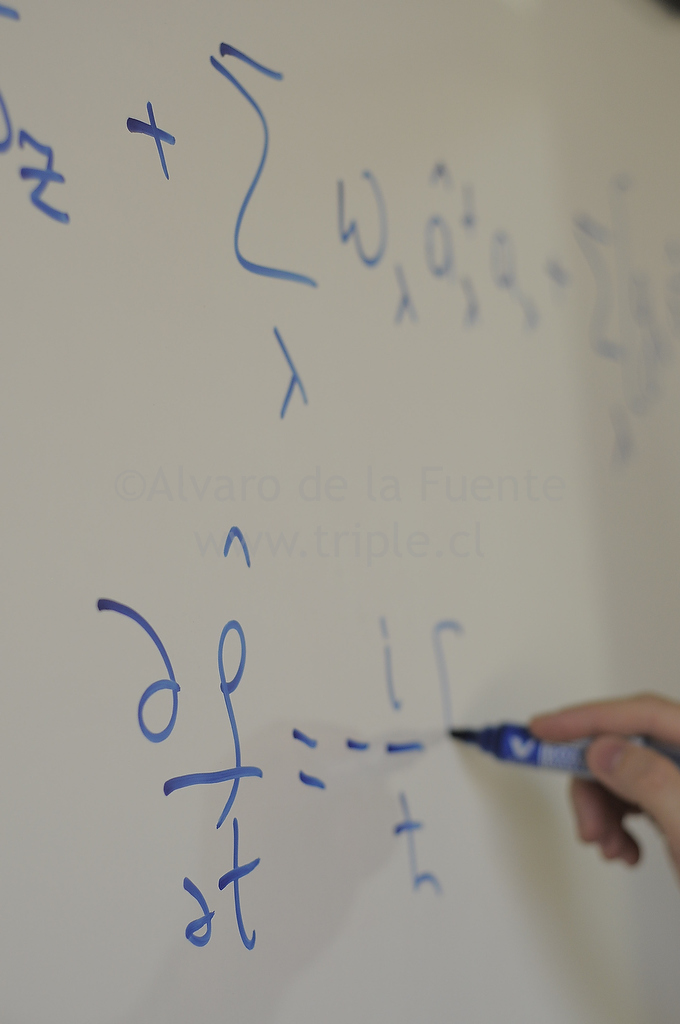 z + Σ ω_λ â†_λ a_λ +
λ
©Alvaro de la Fuente
www.triple.cl
∂ρ̂/∂t = - i/ħ [